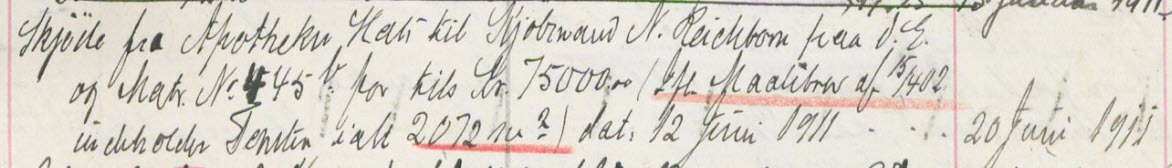 Skjøde fra Apotheker Hals til Kjøbmand N. Reichborn paa d. E.
og Matr. No. 445 b for tils Kr. 75000.00 (Ifl. Maalebrev af 15/4 02
indeholder Tomten ialt 2072 m²) dat. 12 Juni 1911 . . . . 20 Juni 1911